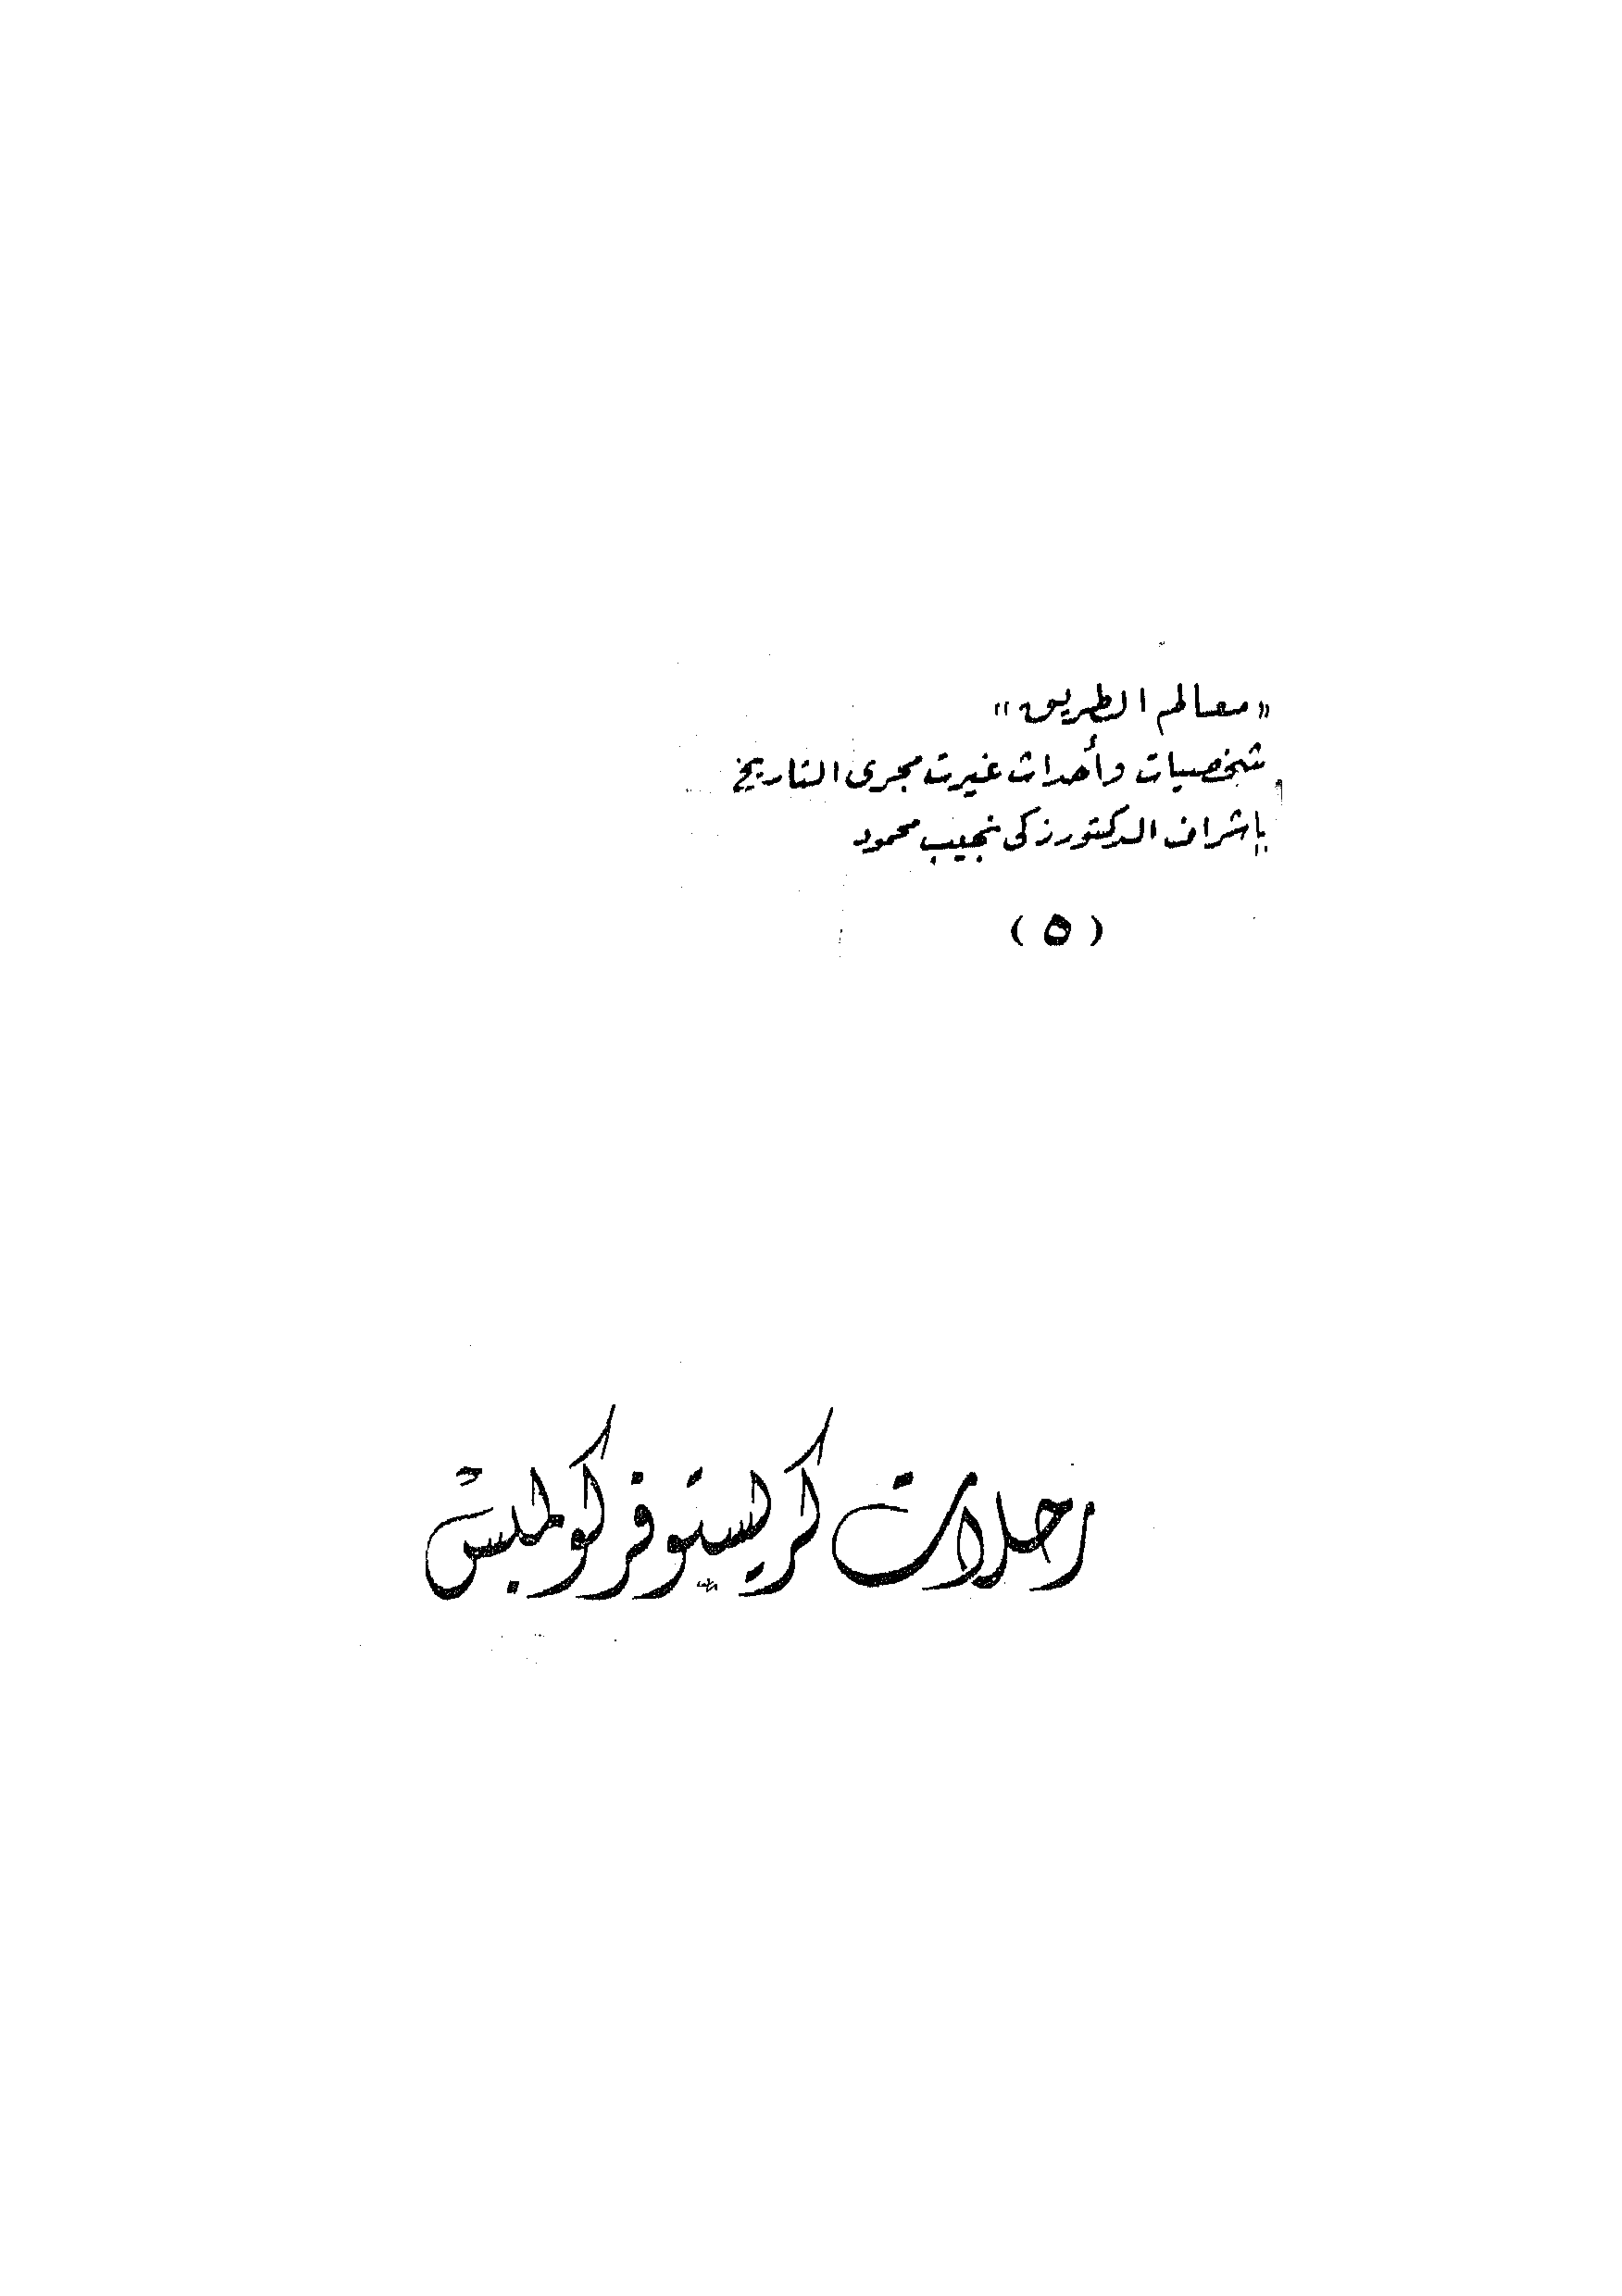 «معالم الطريق»
شخصيات وأحداث غيرت مجرى التاريخ
بإشراف الدكتور زكى نجيب محمود
(٥)
رحلات كريستوفر كولمبس